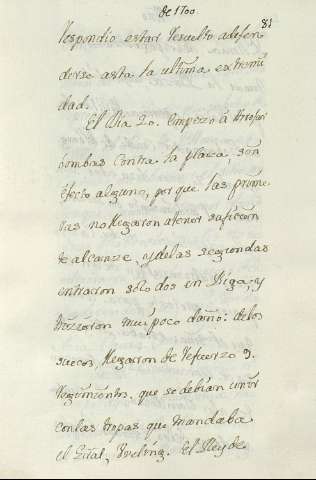 de 1700
81
Respondio estar resuelto a defen
derse asta la ultima extremi
dad.
El Dia 20. empezo â arrojar
bombas contra la plaza, son
efecto alguno, por que las prime
ras no llegaron a tener suficien
te alcanze, y de las segundas
entraron solo dos en Riga, y
hizieron mui poco daño: de los
suecos, llegaron de refuerzo 9.
Regimientos, que se debian unir
con las tropas que mandaba
el Gral, Veling. El Rey de